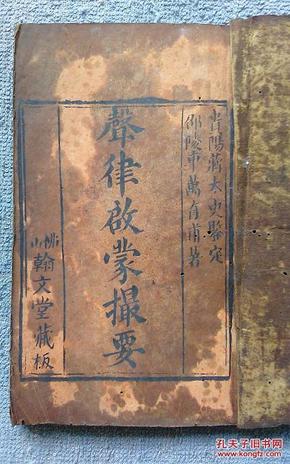 貴陽蔣太史鑒定
邵陵車萬育甫著
聲律啟蒙撮要
佛山翰文堂藏板
孔夫子旧书网